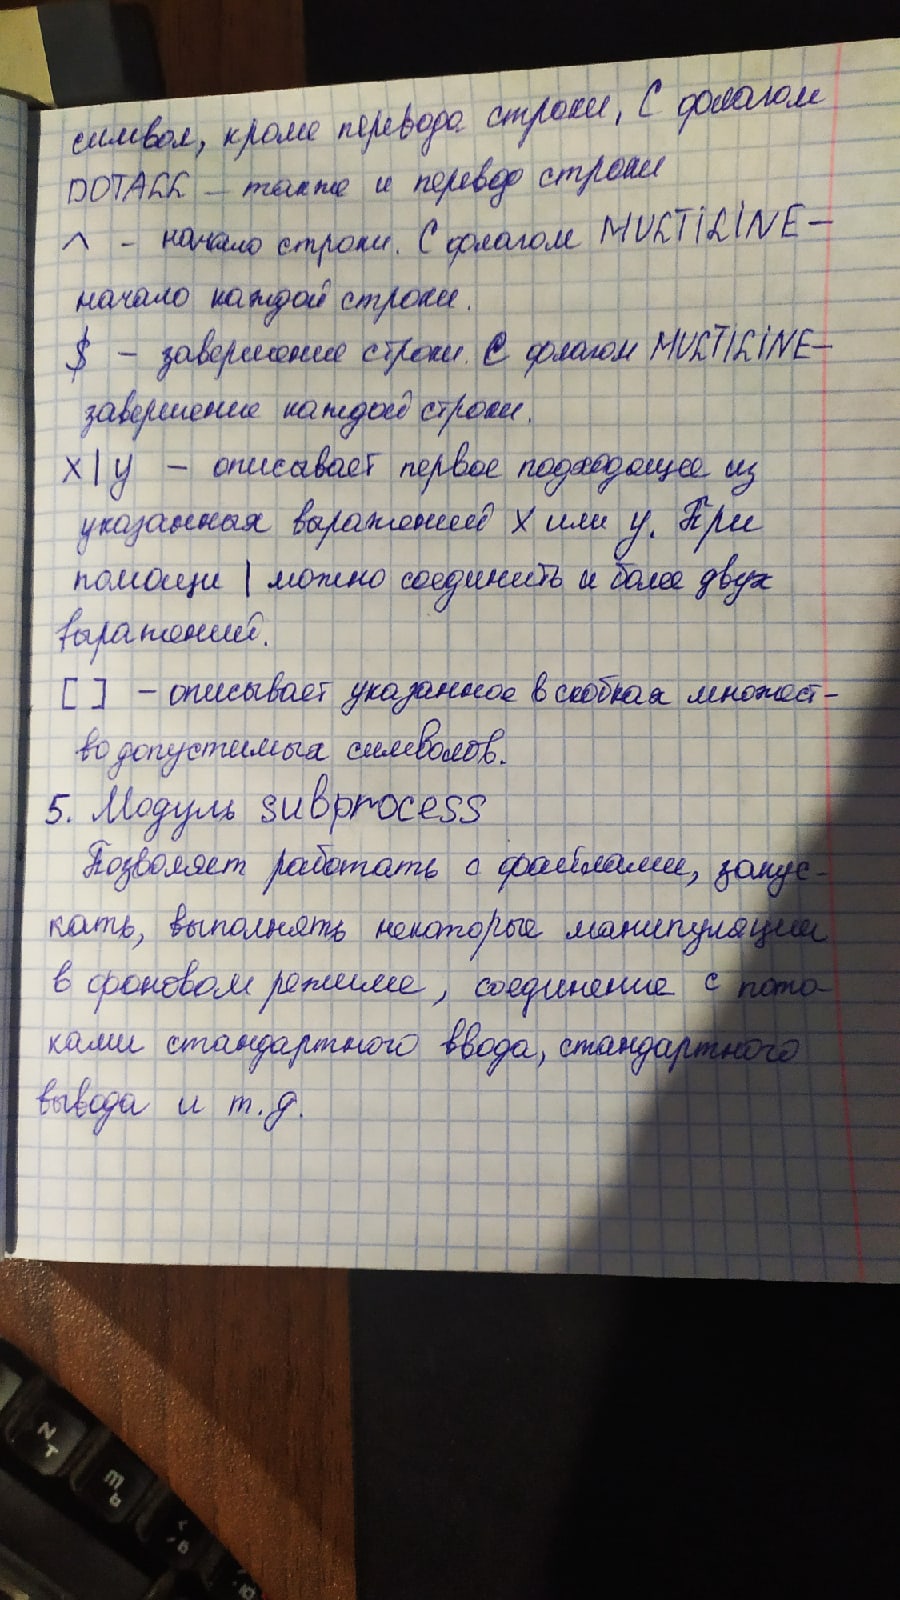 символ, кроме перевода строки, С флагом
DOTALL – также и перевод строки
^ – начало строки. С флагом MULTILINE –
начало каждой строки.
$ – завершение строки. С флагом MULTILINE –
завершение каждой строки.
X|Y – описывает первое подходящее из
указанных выражений X или Y. При
помощи | можно соединить и более двух
выражений.
[ ] – описывает указанное в скобках множест-
во допустимых символов.
5. Модуль subprocess
Позволяет работать с файлами, запус-
кать, выполнять некоторые манипуляции
в фоновом режиме, соединение с пото-
ками стандартного ввода, стандартного
вывода и т.д.
N
Т
M
Ь